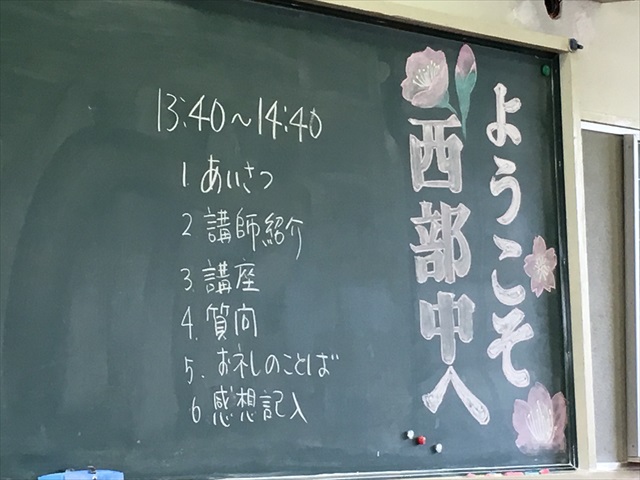 ようこそ
西部中へ
13:40〜14:40
1. あいさつ
2 講師紹介
3. 講座
4. 質向
5. お礼のことば
6 感想記入